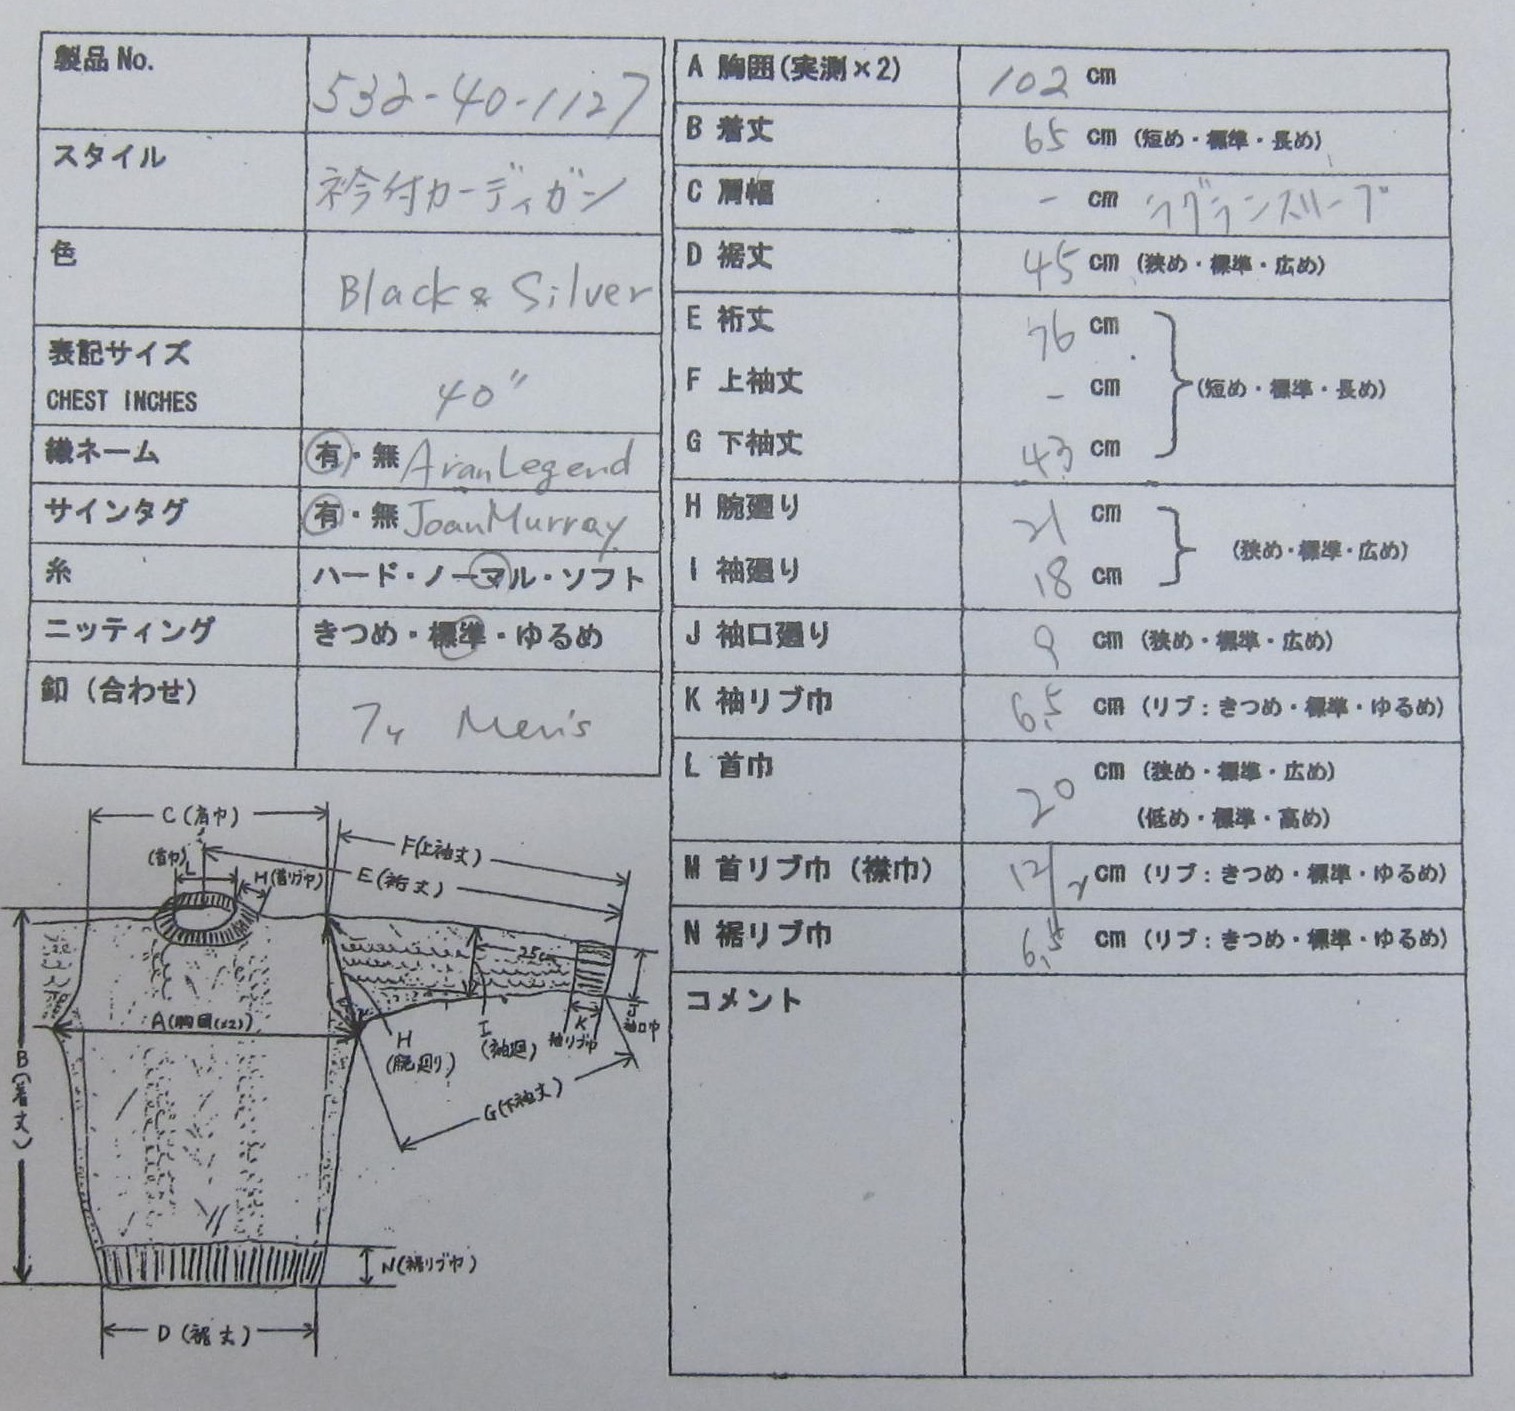 製品No.
532-40-1127
スタイル
衿付カーディガン
色
Black & Silver
表記サイズ
CHEST INCHES
40"
織ネーム
有・無 Aran Legend
サインタグ
有・無 Joan Murray
糸
ハード・ノーマル・ソフト
ニッティング
きつめ・標準・ゆるめ
釦（合わせ）
7ヶ Men's
A 胸囲(実測×2)
102 cm
B 着丈
65 cm (短め・標準・長め)
C 肩幅
- cm ラグランスリーブ
D 裾丈
45 cm (狭め・標準・広め)
E 裄丈
76 cm
F 上袖丈
- cm
(短め・標準・長め)
G 下袖丈
43 cm
H 腕廻り
21 cm
(狭め・標準・広め)
I 袖廻り
18 cm
J 袖口廻り
9 cm (狭め・標準・広め)
K 袖リブ巾
6.5 cm (リブ：きつめ・標準・ゆるめ)
L 首巾
20 cm (狭め・標準・広め)
(低め・標準・高め)
M 首リブ巾（襟巾）
12/2 cm (リブ：きつめ・標準・ゆるめ)
N 裾リブ巾
6.5 cm (リブ：きつめ・標準・ゆるめ)
コメント
C(肩巾)
F(上袖丈)
(首巾)
L
M(首リブ巾)
E(裄丈)
25cm
A(胸囲(x2))
B(着丈)
H
(腕廻り)
I
(袖廻)
K
袖リブ巾
J
袖口巾
G(下袖丈)
N(裾リブ巾)
D(裾丈)